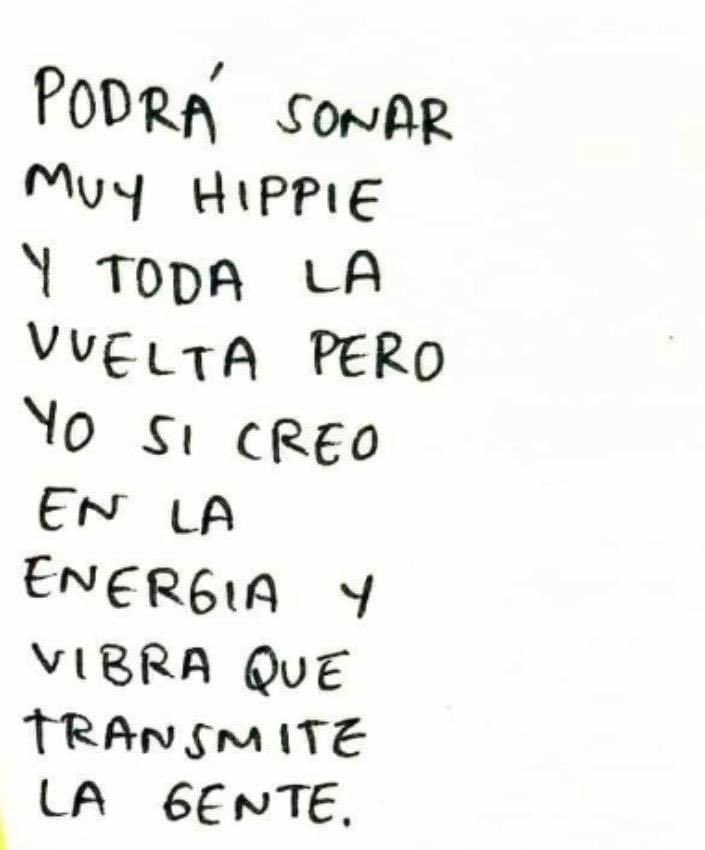 PODRÁ SONAR
MUY HIPPIE
Y TODA LA
VUELTA PERO
YO SI CREO
EN LA
ENERGIA Y
VIBRA QUE
TRANSMITE
LA GENTE.